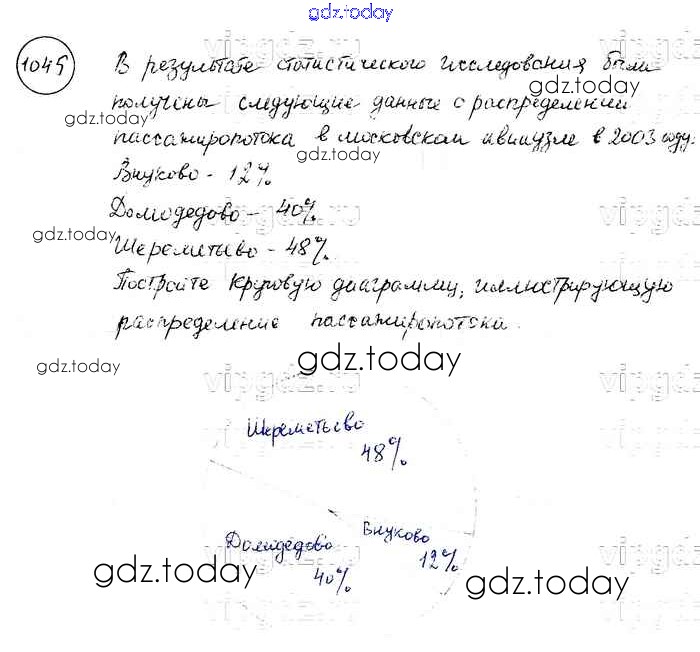 gdz.today
1045 В результате статистического исследования были
vipgdz.ru
получены следующие данные о распределении
gdz.today
gdz.today
пассажиропотока в московском авиаузле в 2003 году:
gdz.today
Внуково - 12%
Домодедово - 40%
vipgdz.ru
vipgdz
gdz.today
gdz.today
Шереметьево - 48%.
Постройте круговую диаграмму, иллюстрирующую
распределение пассажиропотока.
gdz.today
gdz.today
gdz.today
vipgdz.ru
vipgdz
Шереметьево
48%
Внуково
12%
Домодедово
40%
gdz.today
gdz.today